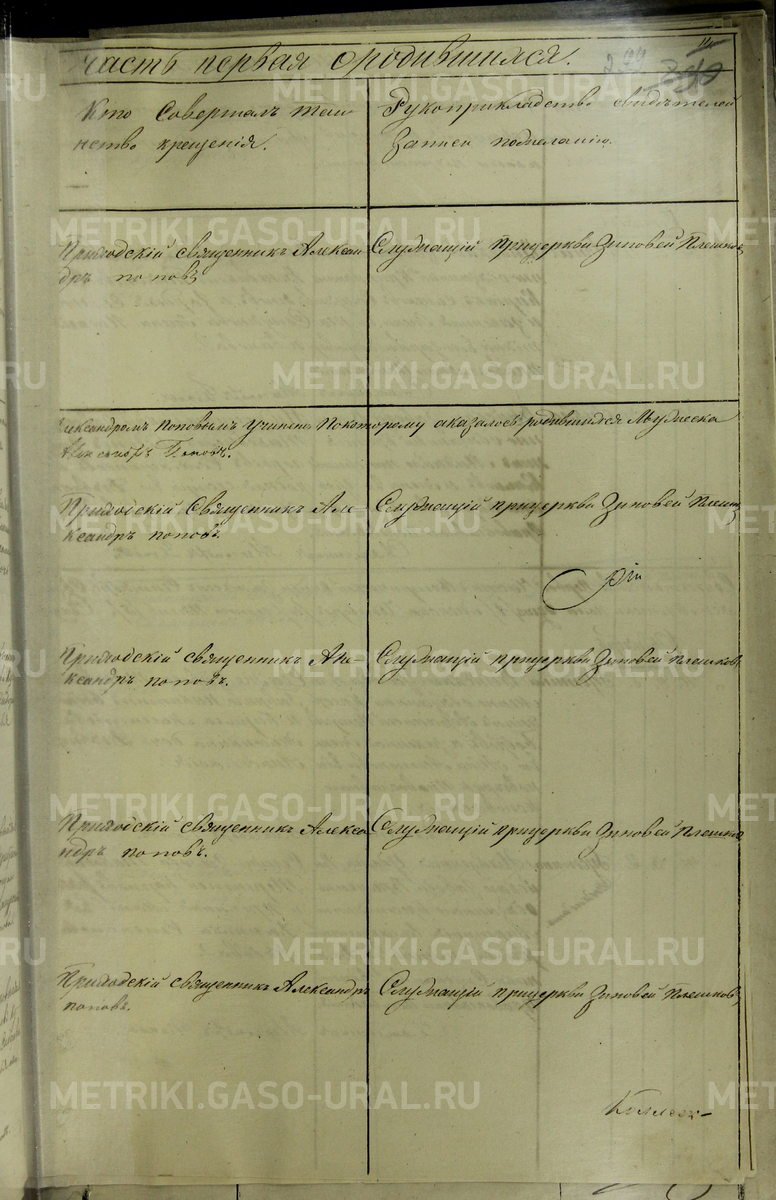 часть первая о родившихся.
Кто совершалъ таи-
нство крещенія.
Рукоприкладство свидѣтелей
записи по желанію.
Приходскій священникъ Алексан
дръ поповъ
Служащій при церкви Зиновей Плешков
лександромъ Поповымъ учинен По которому аказалось родившихся Мужеска
Александръ Поповъ.
Приходскій Священникъ Але-
ксандръ поповъ.
Служащій при церкви Зиновей Плешк
Приходскій священникъ Але-
ксандръ поповъ.
Служащій при церкви Зиновей Плешков
Приходскій священникъ Алекса
ндръ поповъ.
Служащій при церкви Зиновей Плешков
Приходскій священникъ Александръ
поповъ.
Служащій при церкви Зиновей Плешков
METRIKI.GASO-URAL.RU